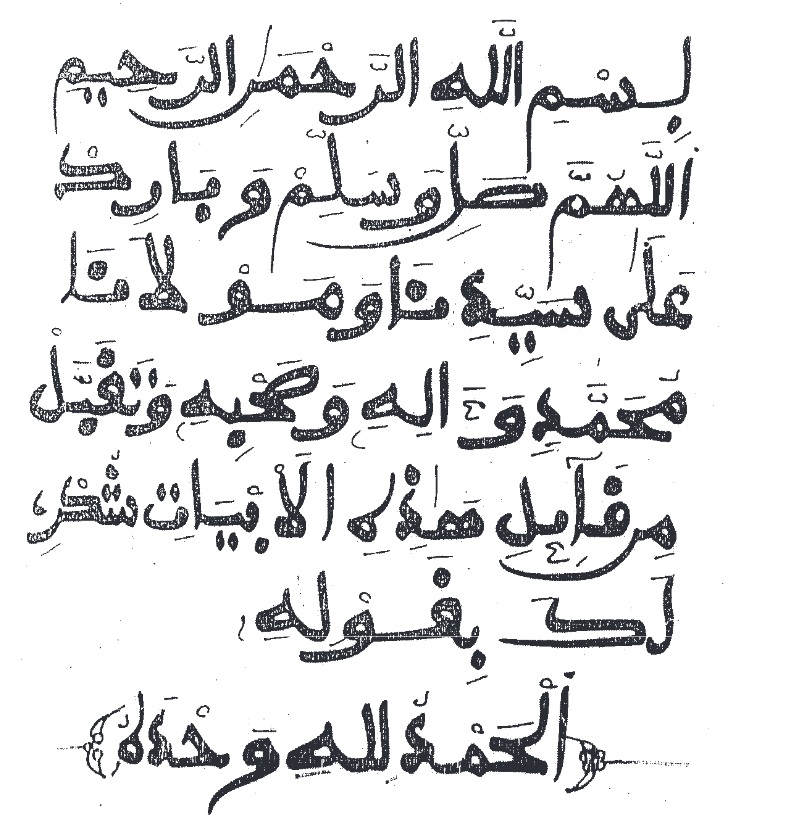 بِسْمِ اللَّهِ الرَّحْمَنِ الرَّحِيمِ
اللَّهُمَّ صَلِّ وَسَلِّمْ وَبَارِكْ
عَلَى سَيِّدِنَا وَمَوْلَانَا
مُحَمَّدٍ وَءَالِهِ وَصَحْبِهِ وَتَقَبَّلْ
مِن قَآئِلِ هَذِهِ الْأَبْيَاتِ شُكْرِ
لَكَ بِقَوْلِهِ
﴿الْحَمْدُ لِلَّهِ وَحْدَهُ﴾